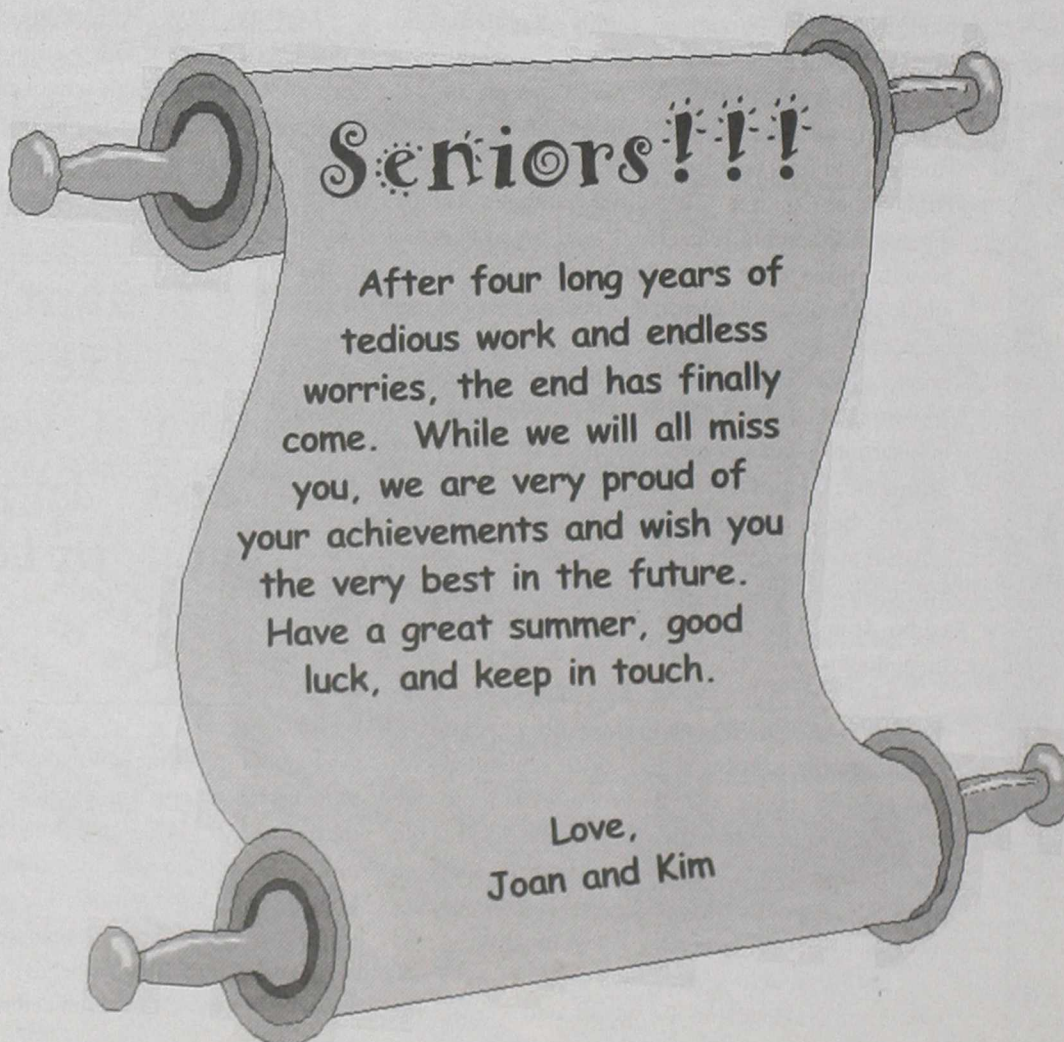 Seniors!!!
After four long years of
tedious work and endless
worries, the end has finally
come. While we will all miss
you, we are very proud of
your achievements and wish you
the very best in the future.
Have a great summer, good
luck, and keep in touch.
Love,
Joan and Kim